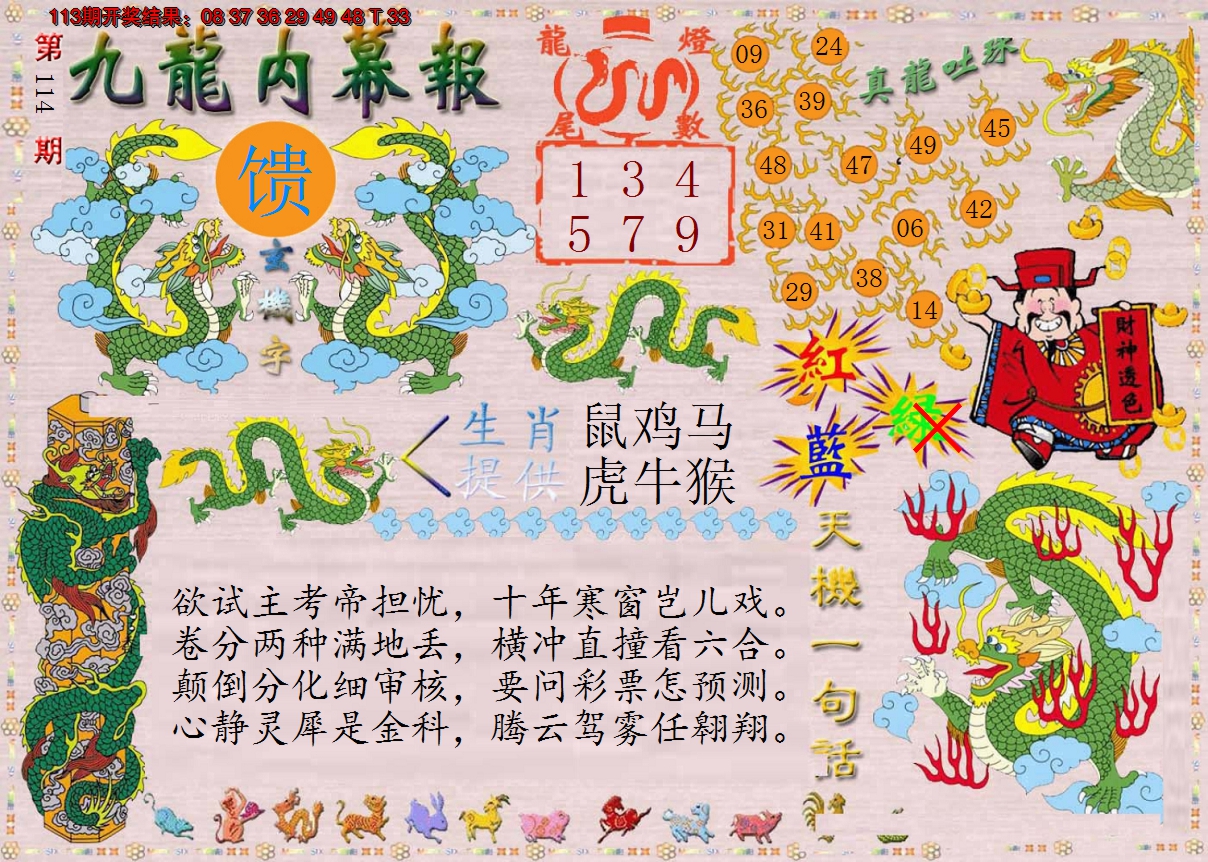 113期开奖结果：06 37 36 29 49 48 T 33
第114期
九龍内幕報
馈
玄機字
龍燈
尾數
1 3 4
5 7 9
真龍吐珠
09 24
36 39
49 45
48 47
42
31 41 06
38
29
14
紅
綠
藍
財神透色
生肖
提供
鼠鸡马
虎牛猴
欲试主考帝担忧，十年寒窗岂儿戏。
卷分两种满地丢，横冲直撞看六合。
颠倒分化细审核，要问彩票怎预测。
心静灵犀是金科，腾云驾雾任翱翔。
天機一句话